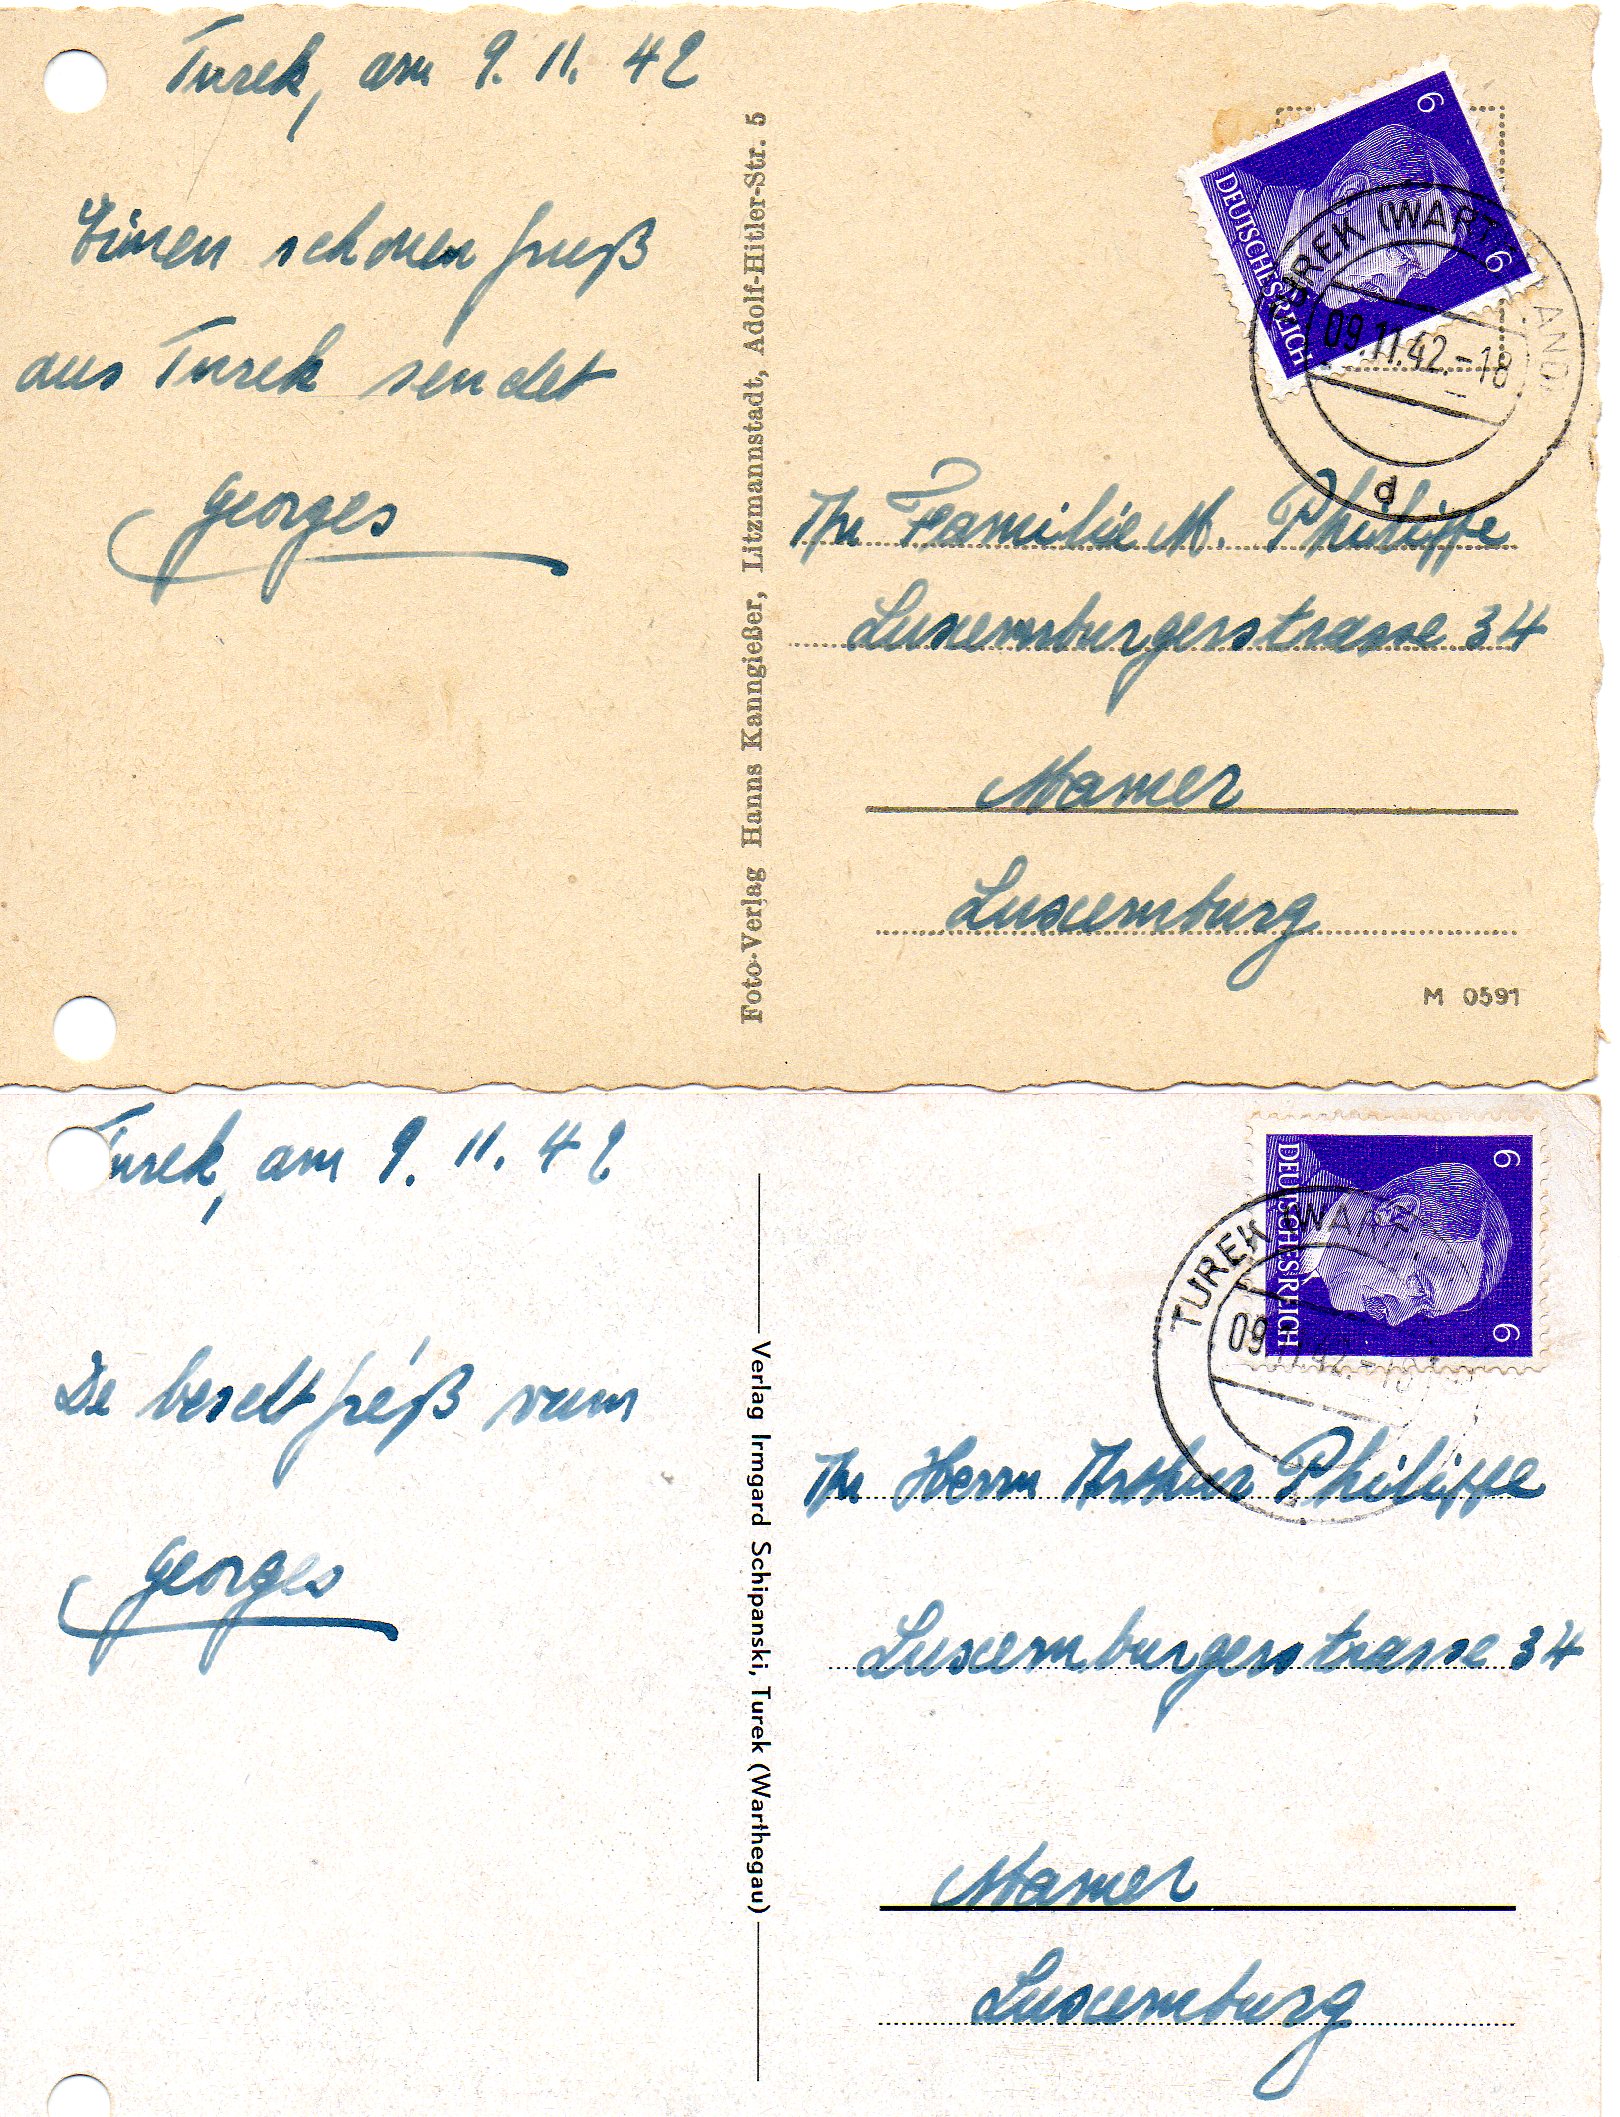 Turek, am 9. 11. 42
Einen schönen Gruß
aus Turek sendet
Georges
Foto-Verlag Hanns Kanngießer, Litzmannstadt, Adolf-Hitler-Str. 5
6
DEUTSCHES REICH
6
TUREK (WARTHELAND)
09.11.42.-18
d
An Familie M. Philippe
Luxemburgerstrasse 34
Mamer
Luxemburg
M 0591
Turek, am 9. 11. 42
De bescht Gréß vum
Georges
Verlag Irmgard Schipanski, Turek (Warthegau)
6
DEUTSCHES REICH
6
TUREK (WART
09.11.42.-18
An Herrn Arthur Philippe
Luxemburgerstrasse 34
Mamer
Luxemburg